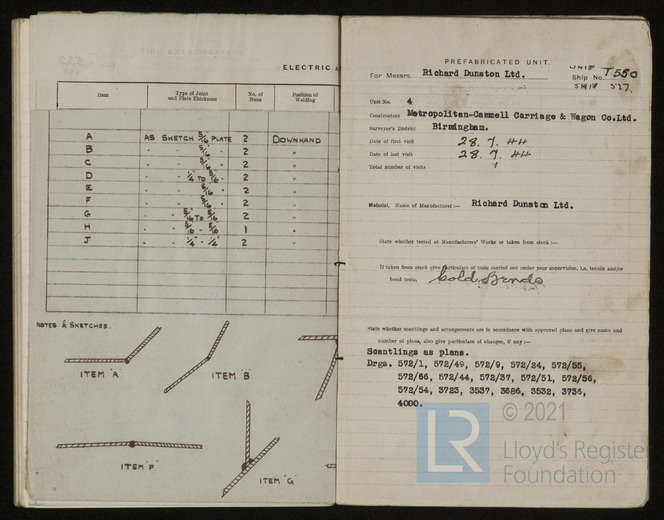 ELECTRIC
Item
Type of Joint
and Plate Thickness
No. of
Runs
Position of
Welding
A AS SKETCH 5/16 PLATE 2 DOWNHAND
B " " 5/16 " 2 "
C " " 5/16 " 2 "
D " " 1/4 TO 5/16 " 2 "
E " " 5/16 " 2 "
F " " 5/16 " 2 "
G " " 5/16 TO 5/16 2 "
H " " 5/16 - 5/16 1 "
J " " 1/4 - 1/4 2 "
NOTES & SKETCHES.
ITEM "A"
ITEM "B"
ITEM "F"
ITEM "G"
PREFABRICATED UNIT.
For Messrs. Richard Dunston Ltd.
UNIT
Ship No. T550
SHIP 517.
Unit No. 4
Constructors Metropolitan-Cammell Carriage & Wagon Co.Ltd.
Surveyor's District Birmingham.
Date of first visit 28. 7. 44
Date of last visit 28. 7. 44
Total number of visits 1
Material. Name of Manufacturer:— Richard Dunston Ltd.
State whether tested at Manufacturers' Works or taken from stock:—
If taken from stock give particulars of tests carried out under your supervision, i.e. tensile and/or
bend tests. Cold Bends.
State whether scantlings and arrangements are in accordance with approved plans and give name and
number of plans, also give particulars of changes, if any:—
Scantlings as plans.
Drgs. 572/1, 572/49, 572/9, 572/24, 572/55,
572/66, 572/44, 572/37, 572/51, 572/56,
572/54, 3723, 3537, 3686, 3532, 3736,
4000.
LR
© 2021
Lloyd's Register
Foundation